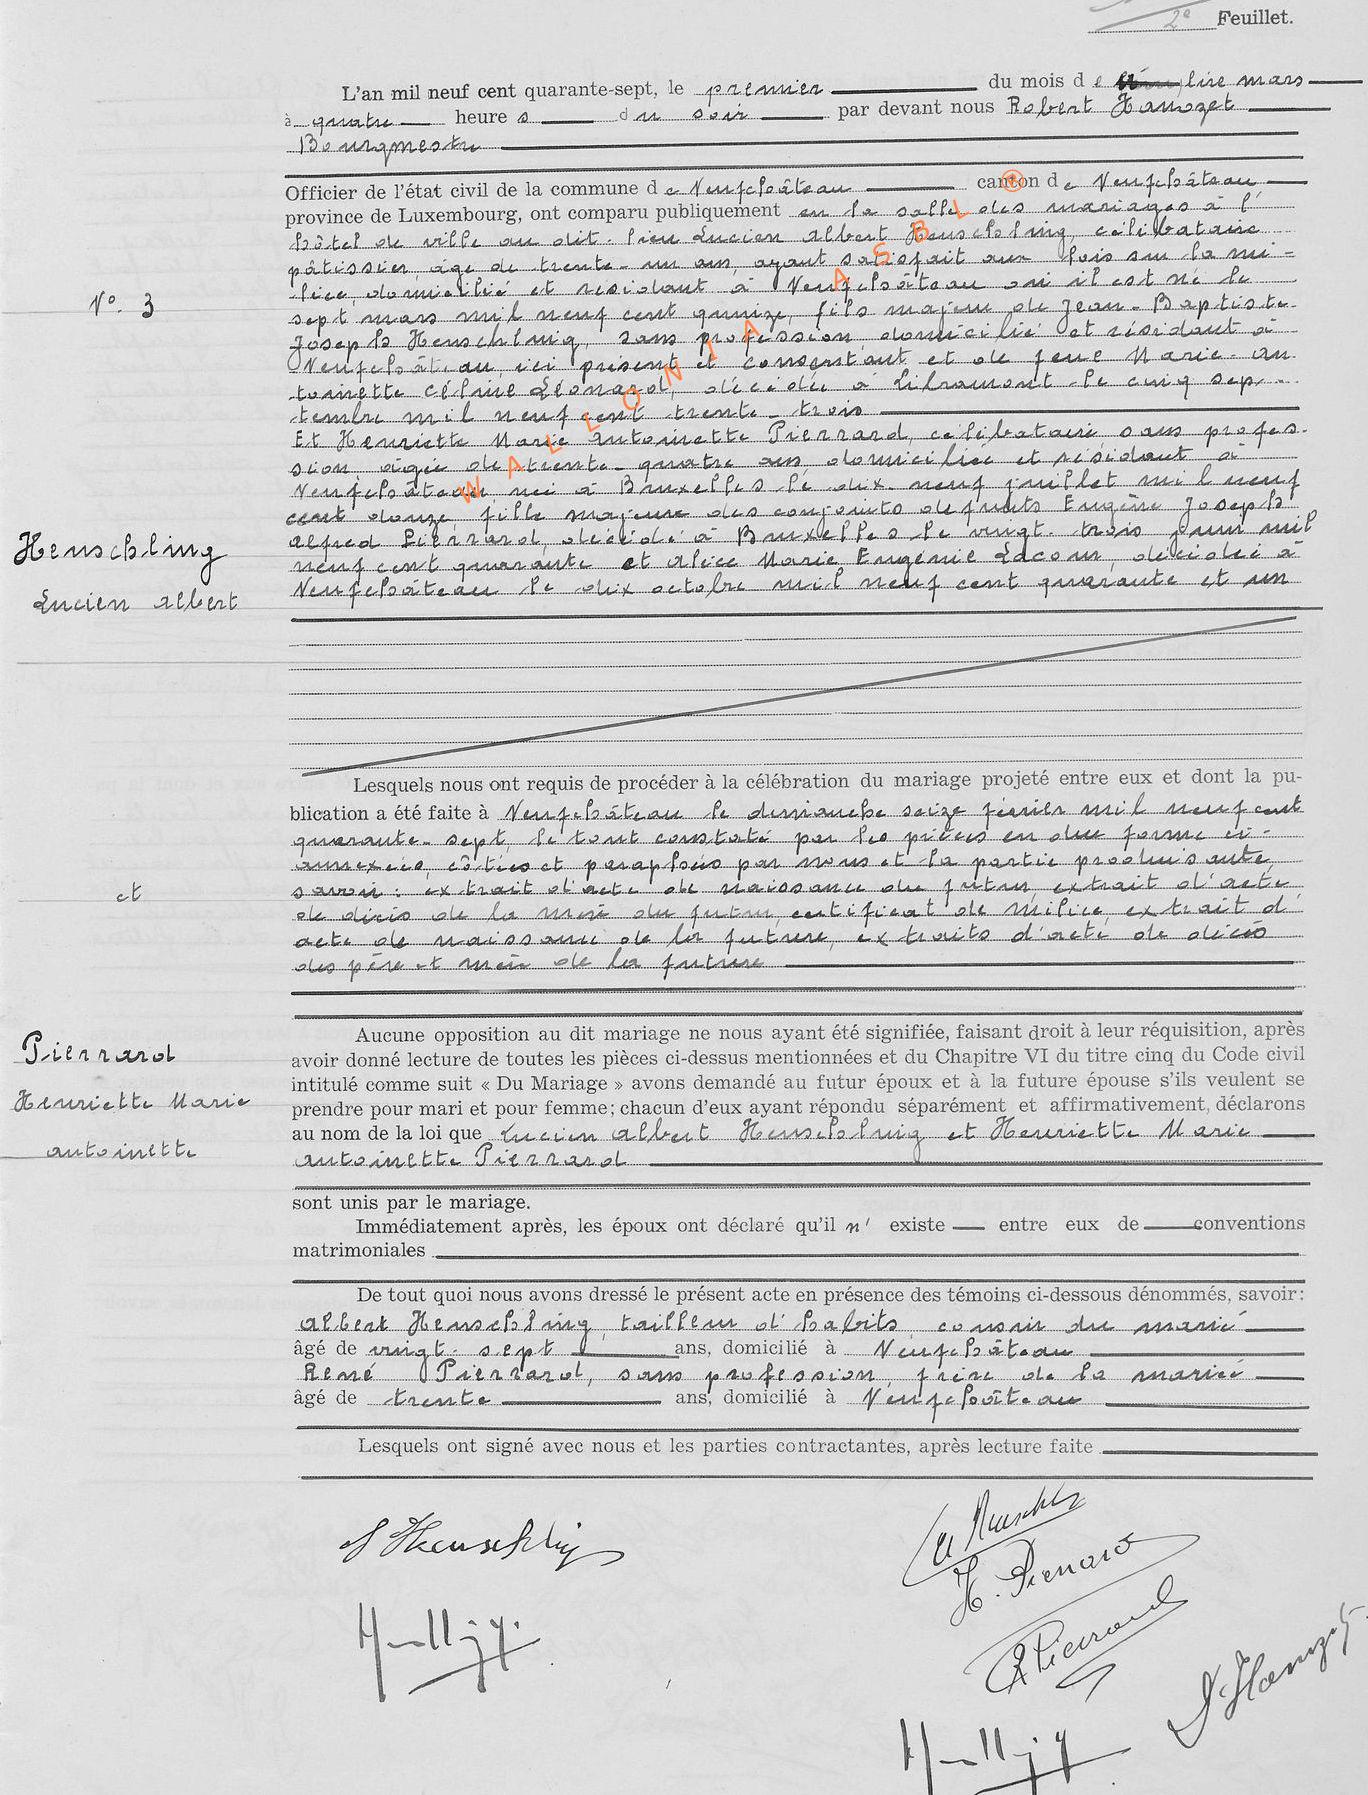 2e Feuillet.
L'an mil neuf cent quarante-sept, le premier du mois de lire mars
à quatre heures du soir par devant nous Robert Hamozet
Bourgmestre
Officier de l'état civil de la commune de Neufchâteau canton de Neufchâteau
province de Luxembourg, ont comparu publiquement en la salle des mariages à l'
hôtel de ville au dit-lieu Lucien Albert Heuschling, célibataire
pâtissier, âgé de trente-un ans, ayant satisfait aux lois sur la mi-
lice, domicilié et résidant à Neufchâteau où il est né le
sept mars mil neuf cent quinze, fils majeur de Jean-Baptiste-
Joseph Heuschling, sans profession, domicilié et résidant à
Neufchâteau, ici présent et consentant et de feue Marie-An
toinette Céline Léonard, décédée à Libramont le cinq sep-
tembre mil neuf cent trente-trois
Et Henriette Marie Antoinette Pierrard, célibataire, sans profes-
sion, âgée de trente-quatre ans, domiciliée et résidant à
Neufchâteau, née à Bruxelles le dix-neuf juillet mil neuf
cent douze, fille majeure des conjoints défunts Eugène Joseph
Alfred Pierrard, décédé à Bruxelles le vingt-trois juin mil
neuf cent quarante et Alice Marie Eugénie Lacour, décédée à
Neufchâteau le dix octobre mil neuf cent quarante et un
N° 3
Heuschling
Lucien Albert
et
Pierrard
Henriette Marie
Antoinette
Lesquels nous ont requis de procéder à la célébration du mariage projeté entre eux et dont la pu-
blication a été faite à Neufchâteau le dimanche seize février mil neuf cent
quarante-sept, le tout constaté par les pièces en due forme ci-
annexées, côtées et paraphées par nous et la partie produisante
savoir : extrait d'acte de naissance du futur, extrait d'acte
de décès de la mère du futur, certificat de milice, extrait d'
acte de naissance de la future, extraits d'acte de décès
des père et mère de la future
Aucune opposition au dit mariage ne nous ayant été signifiée, faisant droit à leur réquisition, après
avoir donné lecture de toutes les pièces ci-dessus mentionnées et du Chapitre VI du titre cinq du Code civil
intitulé comme suit « Du Mariage » avons demandé au futur époux et à la future épouse s'ils veulent se
prendre pour mari et pour femme; chacun d'eux ayant répondu séparément et affirmativement, déclarons
au nom de la loi que Lucien Albert Heuschling et Henriette Marie
Antoinette Pierrard
sont unis par le mariage.
Immédiatement après, les époux ont déclaré qu'il n' existe entre eux de conventions
matrimoniales
De tout quoi nous avons dressé le présent acte en présence des témoins ci-dessous dénommés, savoir:
Albert Heuschling, tailleur d'habits, cousin du marié
âgé de vingt-sept ans, domicilié à Neufchâteau
René Pierrard, sans profession, frère de la mariée
âgé de trente ans, domicilié à Neufchâteau
Lesquels ont signé avec nous et les parties contractantes, après lecture faite
Heuschling
H. Pierrard
R Pierrard
WALLONIA ASBL